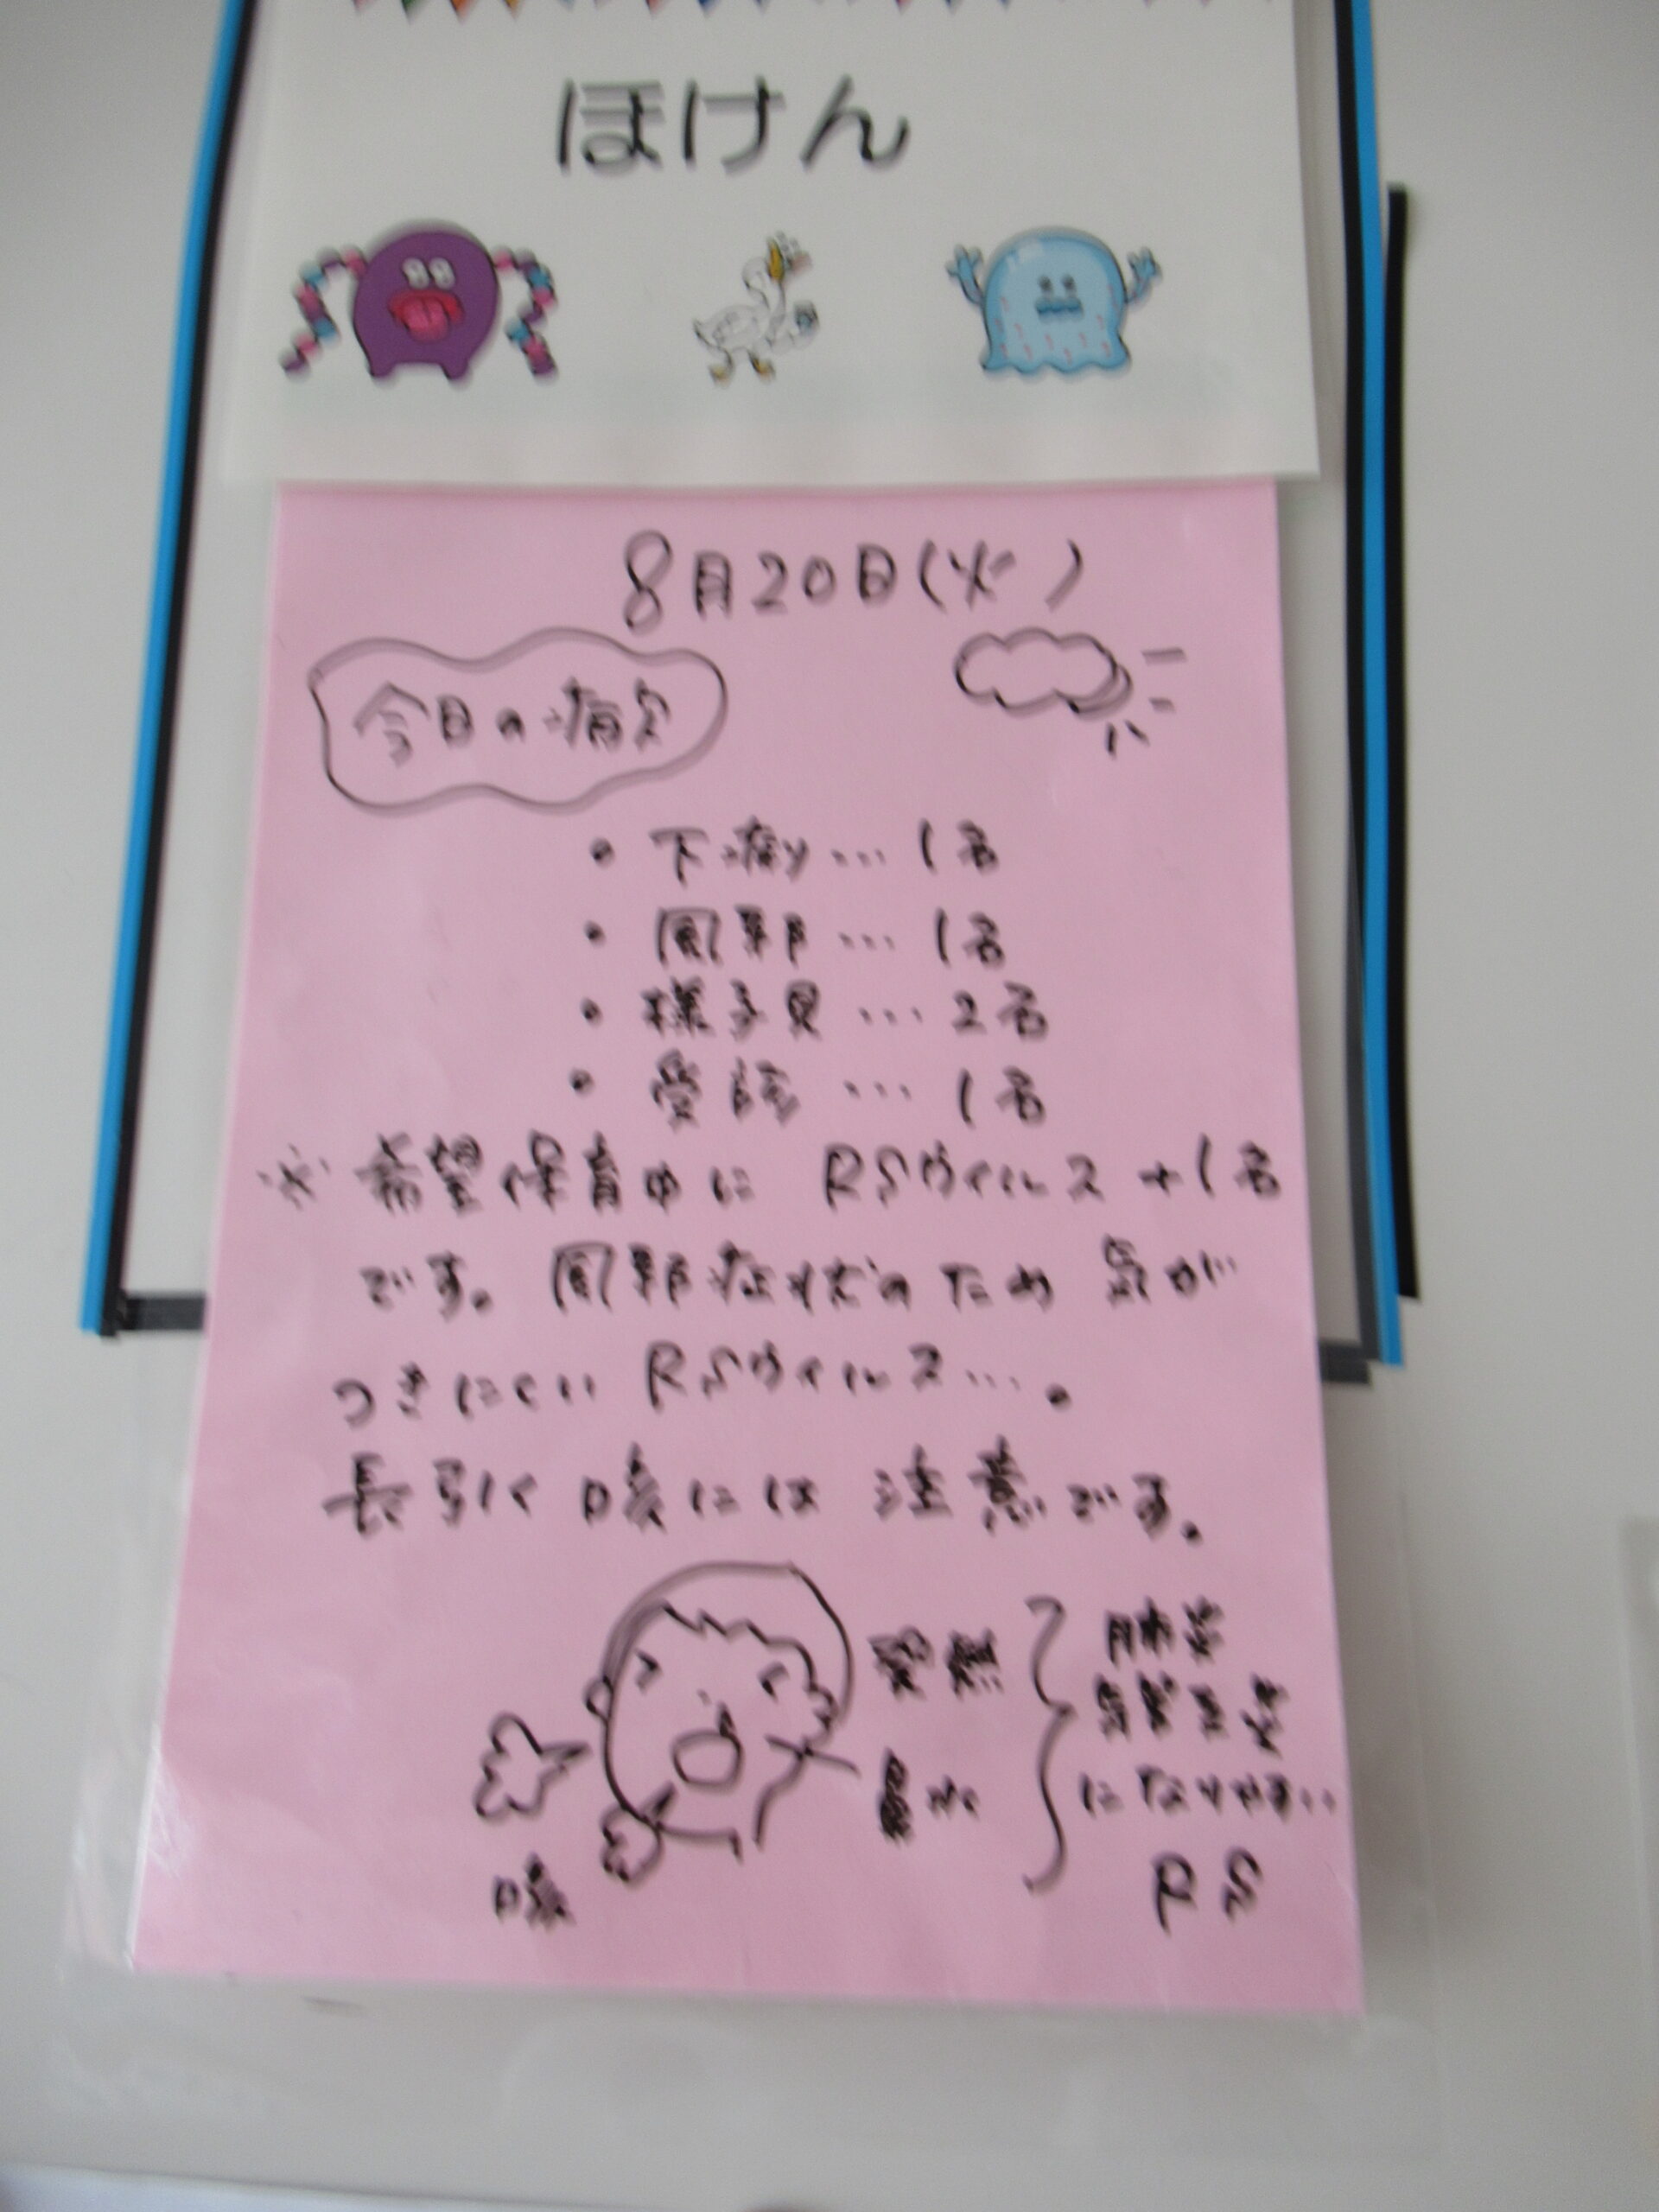 ほけん
8月20日(火)
今日の病欠
・下痢…1名
・風邪…1名
・様子見…2名
・受診…1名
※希望保育中に RSウイルス+1名
です。風邪症状のため 気が
つきにくい RSウイルス…。
長引く 咳には 注意です。
発熱
肺炎
気管支炎
鼻水
になりやすい
咳
RS